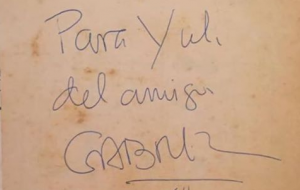 Para Yuli
del amigo
GABRIEL